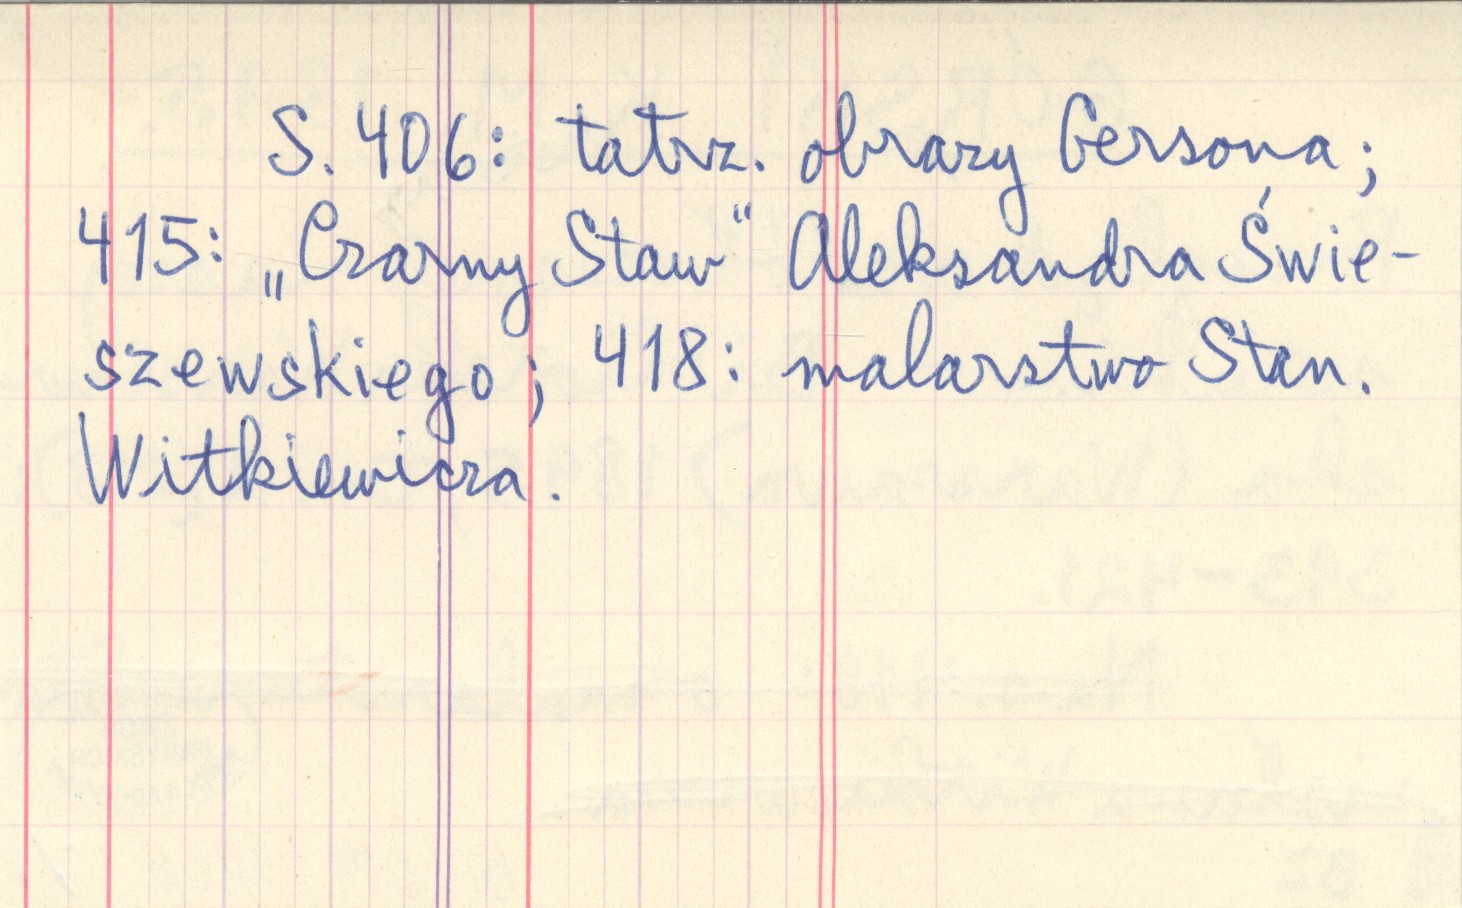 S. 406: tatrz. obrazy Gersona;
415: „Czarny Staw" Aleksandra Świe-
szewskiego; 418: malarstwo Stan.
Witkiewicza.